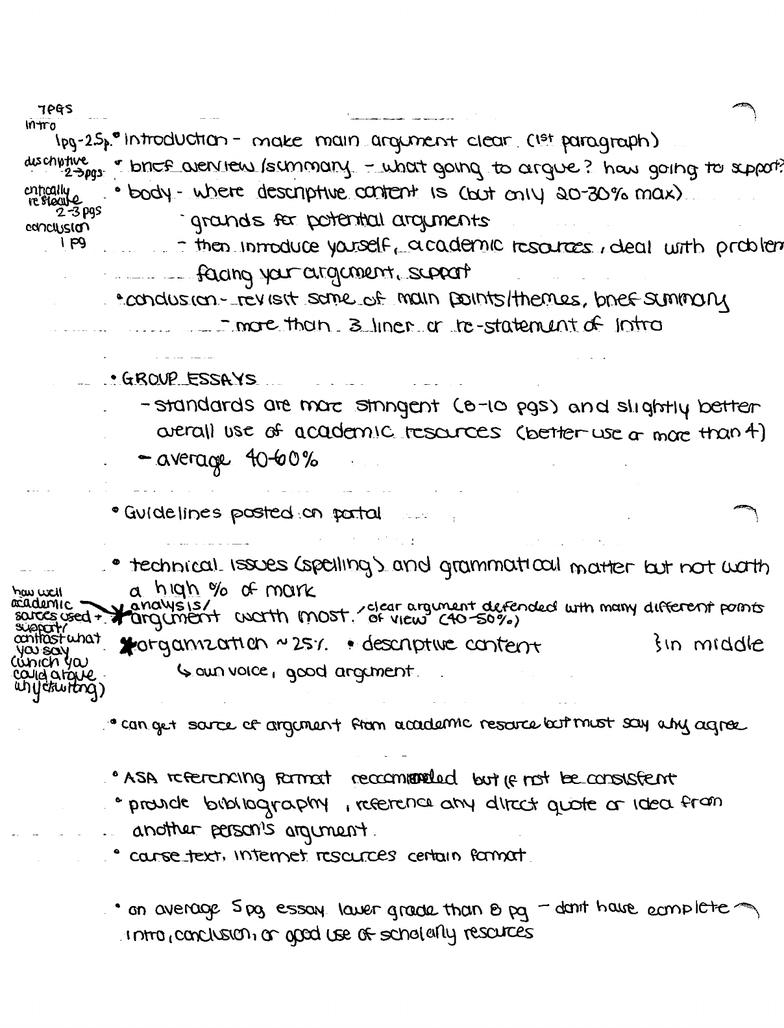 7PGS
intro
1pg-2.5p.
descriptive
2-3pgs
critically
2-3 pgs
conclusion
1 pg
• introduction - make main argument clear (1st paragraph)
• brief overview/summary - what going to argue? how going to support?
• body - where descriptive content is (but only 20-30% max)
- grounds for potential arguments
- then introduce yourself, academic resources, deal with problem
facing your argument, support
• conclusion - revisit some of main points/themes, brief summary
- more than 3 liner or re-statement of intro
• GROUP ESSAYS
- standards are more stringent (8-10 pgs) and slightly better
overall use of academic resources (better use or more than 4)
- average 40-60%
• Guidelines posted on portal
• technical issues (spelling) and grammatical matter but not worth
a high % of mark
how well
academic
sources used +
support/
contrast what
you say
(which you
could argue
why disagreeing)
* analysis/
argument worth most. / clear argument defended with many different points
of view (40-50%)
* organization ~25%. • descriptive content } in middle
↳ own voice, good argument.
• can get source of argument from academic resource but must say why agree
• ASA referencing format reccomended but if not be consistent
• provide bibliography, reference any direct quote or idea from
another person's argument.
• course text, internet resources certain format
• on average 5 pg essay lower grade than 8 pg - don't have complete
intro, conclusion, or good use of scholarly resources